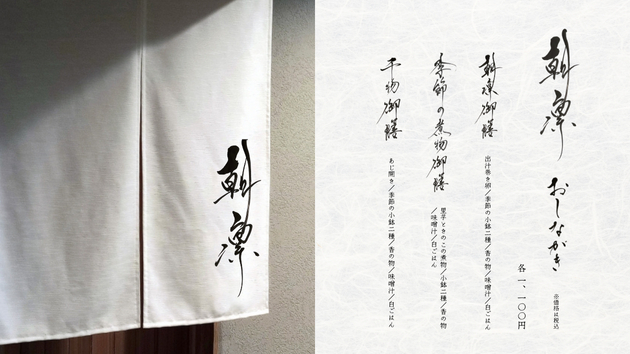 朝凛
朝凛
おしながき
※価格は税込
各一、一〇〇円
朝凛御膳
出汁巻き卵／季節の小鉢二種／香の物／味噌汁／白ごはん
季節の煮物御膳
里芋ときのこの煮物／小鉢二種／香の物
／味噌汁／白ごはん
干物御膳
あじ開き／季節の小鉢二種／香の物／味噌汁／白ごはん